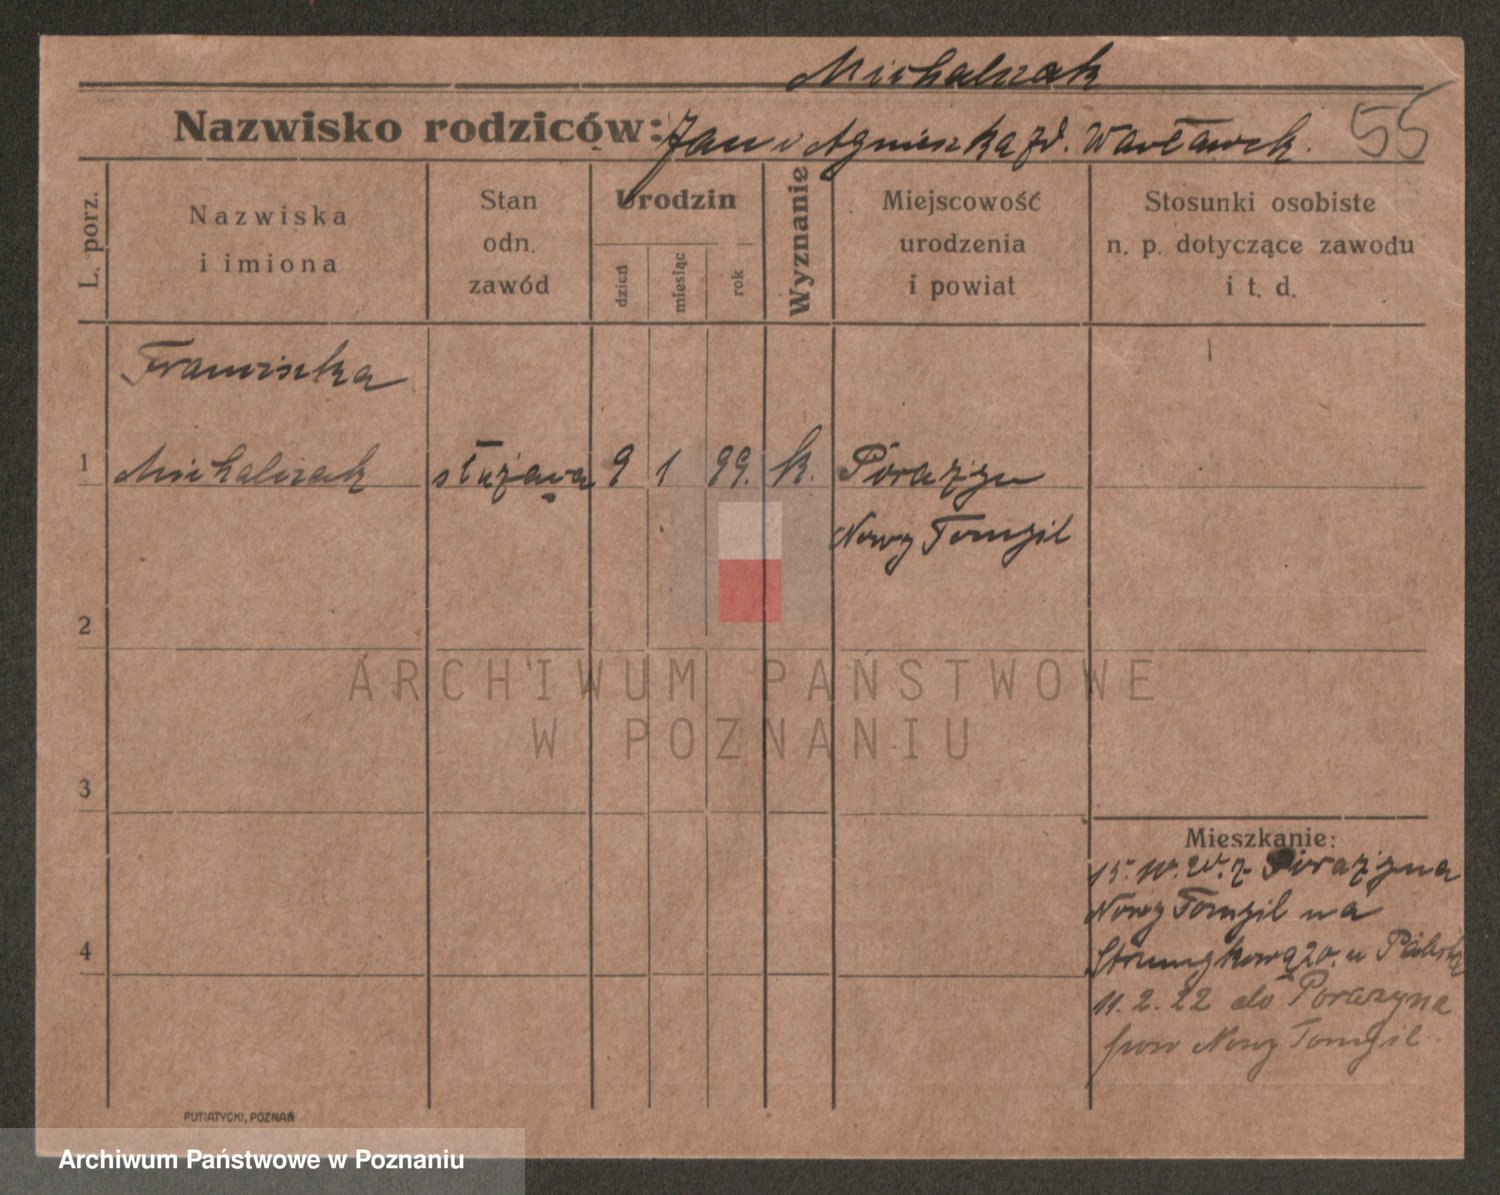 Michalczak
Nazwisko rodziców: Jan i Agnieszka zd. Wacławek. 55
L. porz.
Nazwiska
i imiona
Stan
odn.
zawód
Urodzin
dzień
miesiąc
rok
Wyznanie
Miejscowość
urodzenia
i powiat
Stosunki osobiste
n. p. dotyczące zawodu
i t. d.
Franciszka
1 Michalczak służąca 9 1 99. k. Porażyn
Nowy Tomyśl
2
3
4
Mieszkanie:
15. 10. 20. z Porażyna
Nowy Tomyśl na
20. u
11. 2. 22 do Porazyna
pow Nowy Tomyśl
PUTIATYCKI, POZNAŃ
ARCHIWUM PAŃSTWOWE
W POZNANIU
Archiwum Państwowe w Poznaniu